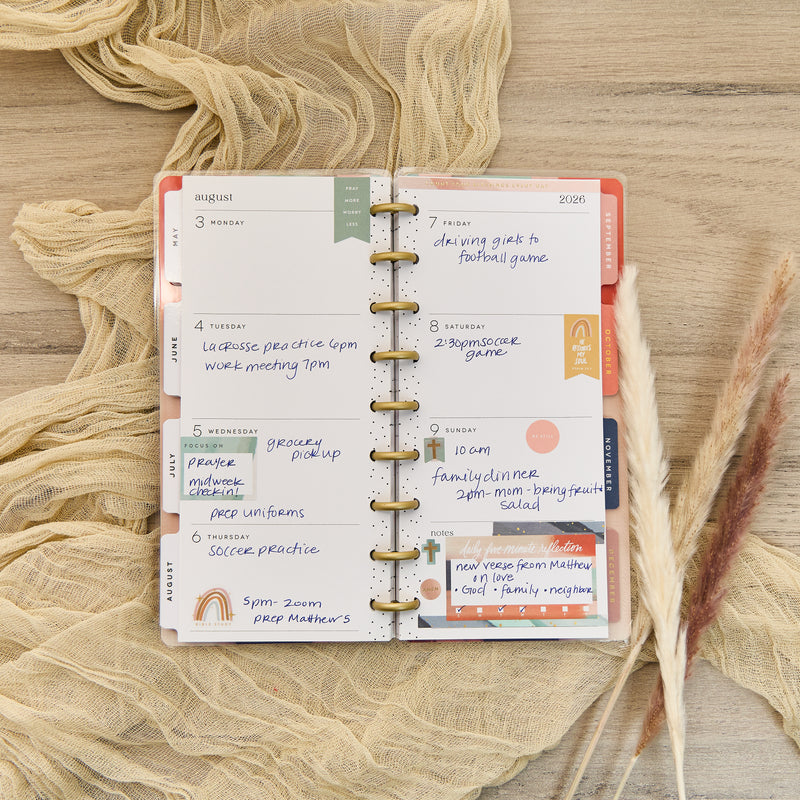 august
PRAY
MORE
WORRY
LESS
3 MONDAY
4 TUESDAY
Lacrosse practice 6pm
work meeting 7pm
5 WEDNESDAY
grocery
pickup
FOCUS ON
prayer
midweek
checkin!
prep uniforms
6 THURSDAY
soccer practice
5pm - zoom
prep Matthew 5
BIBLE STUDY
MAY
JUNE
JULY
AUGUST
2026
7 FRIDAY
driving girls to
football game
8 SATURDAY
2:30pm soccer
game
HE
RESTORES
MY
SOUL
9 SUNDAY
BE STILL
10 am
family dinner
2pm - mom - bring fruit
salad
notes
daily five minute reflection
new verse from Matthew
on love
• God • family • neighbor
SEPTEMBER
OCTOBER
NOVEMBER
DECEMBER